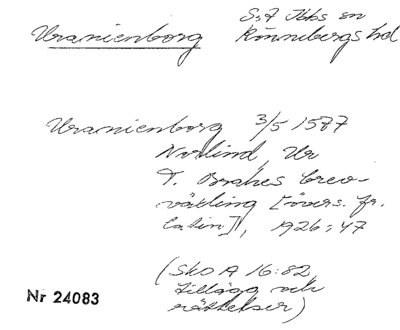 Uranienborg S:t Ibbs sn
Rönnebergs hd
Uranienborg 3/5 1587
Norlind, Ur
T. Brahes brev-
växling [övers. fr.
latin], 1926:47
(Sko A 16:82,
tillägg och
rättelser)
Nr 24083